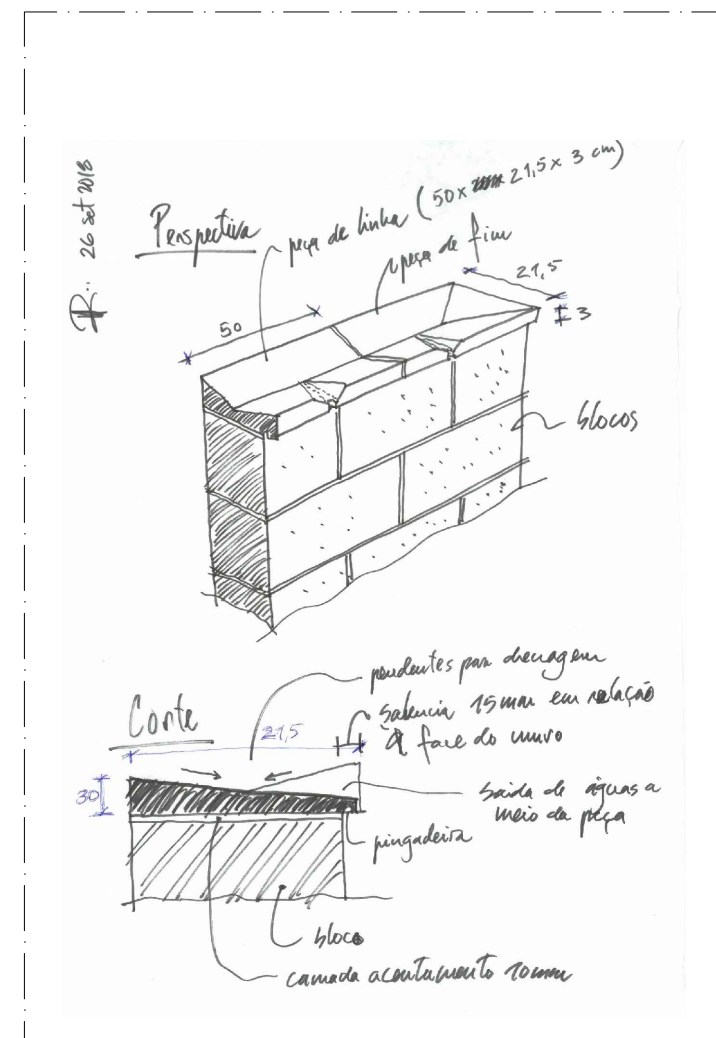 26 set 2018
Perspectiva
peça de linha (50 x 21,5 x 3 cm)
peça de fim
21,5
3
50
blocos
Corte
pendentes para drenagem
saliencia 15mm em relação
à face do muro
21,5
30
saída de águas a
meio da peça
pingadeira
bloco
camada acentamento 10mm